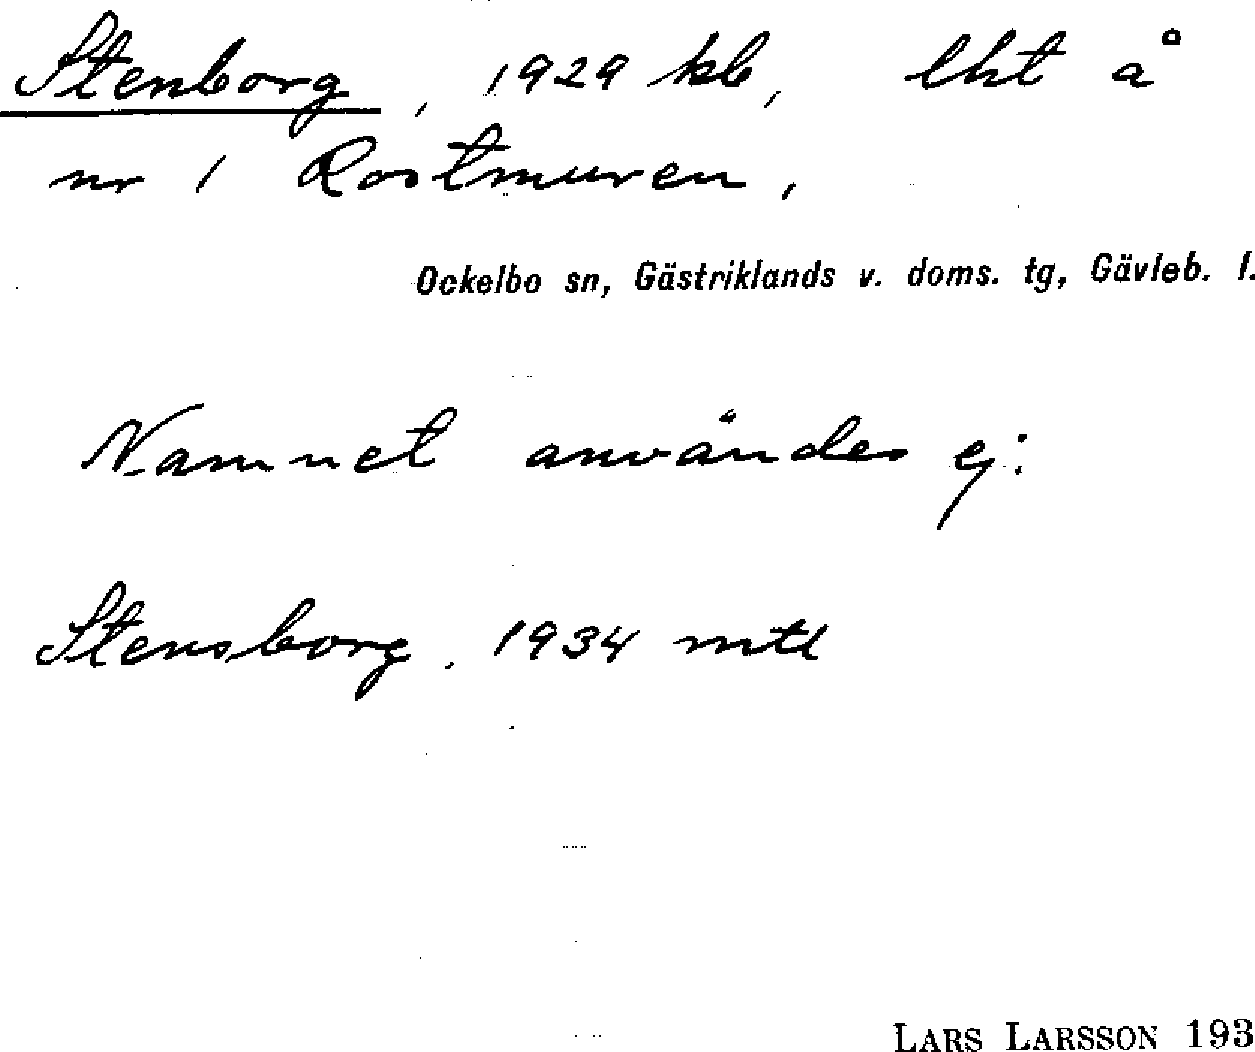 Stenborg, 1929 kb, lht å
nr 1 Rostmuren,
Ockelbo sn, Gästriklands v. doms. tg, Gävleb. l.
Namnet användes ej:
Stensborg. 1934 mtl
LARS LARSSON 193